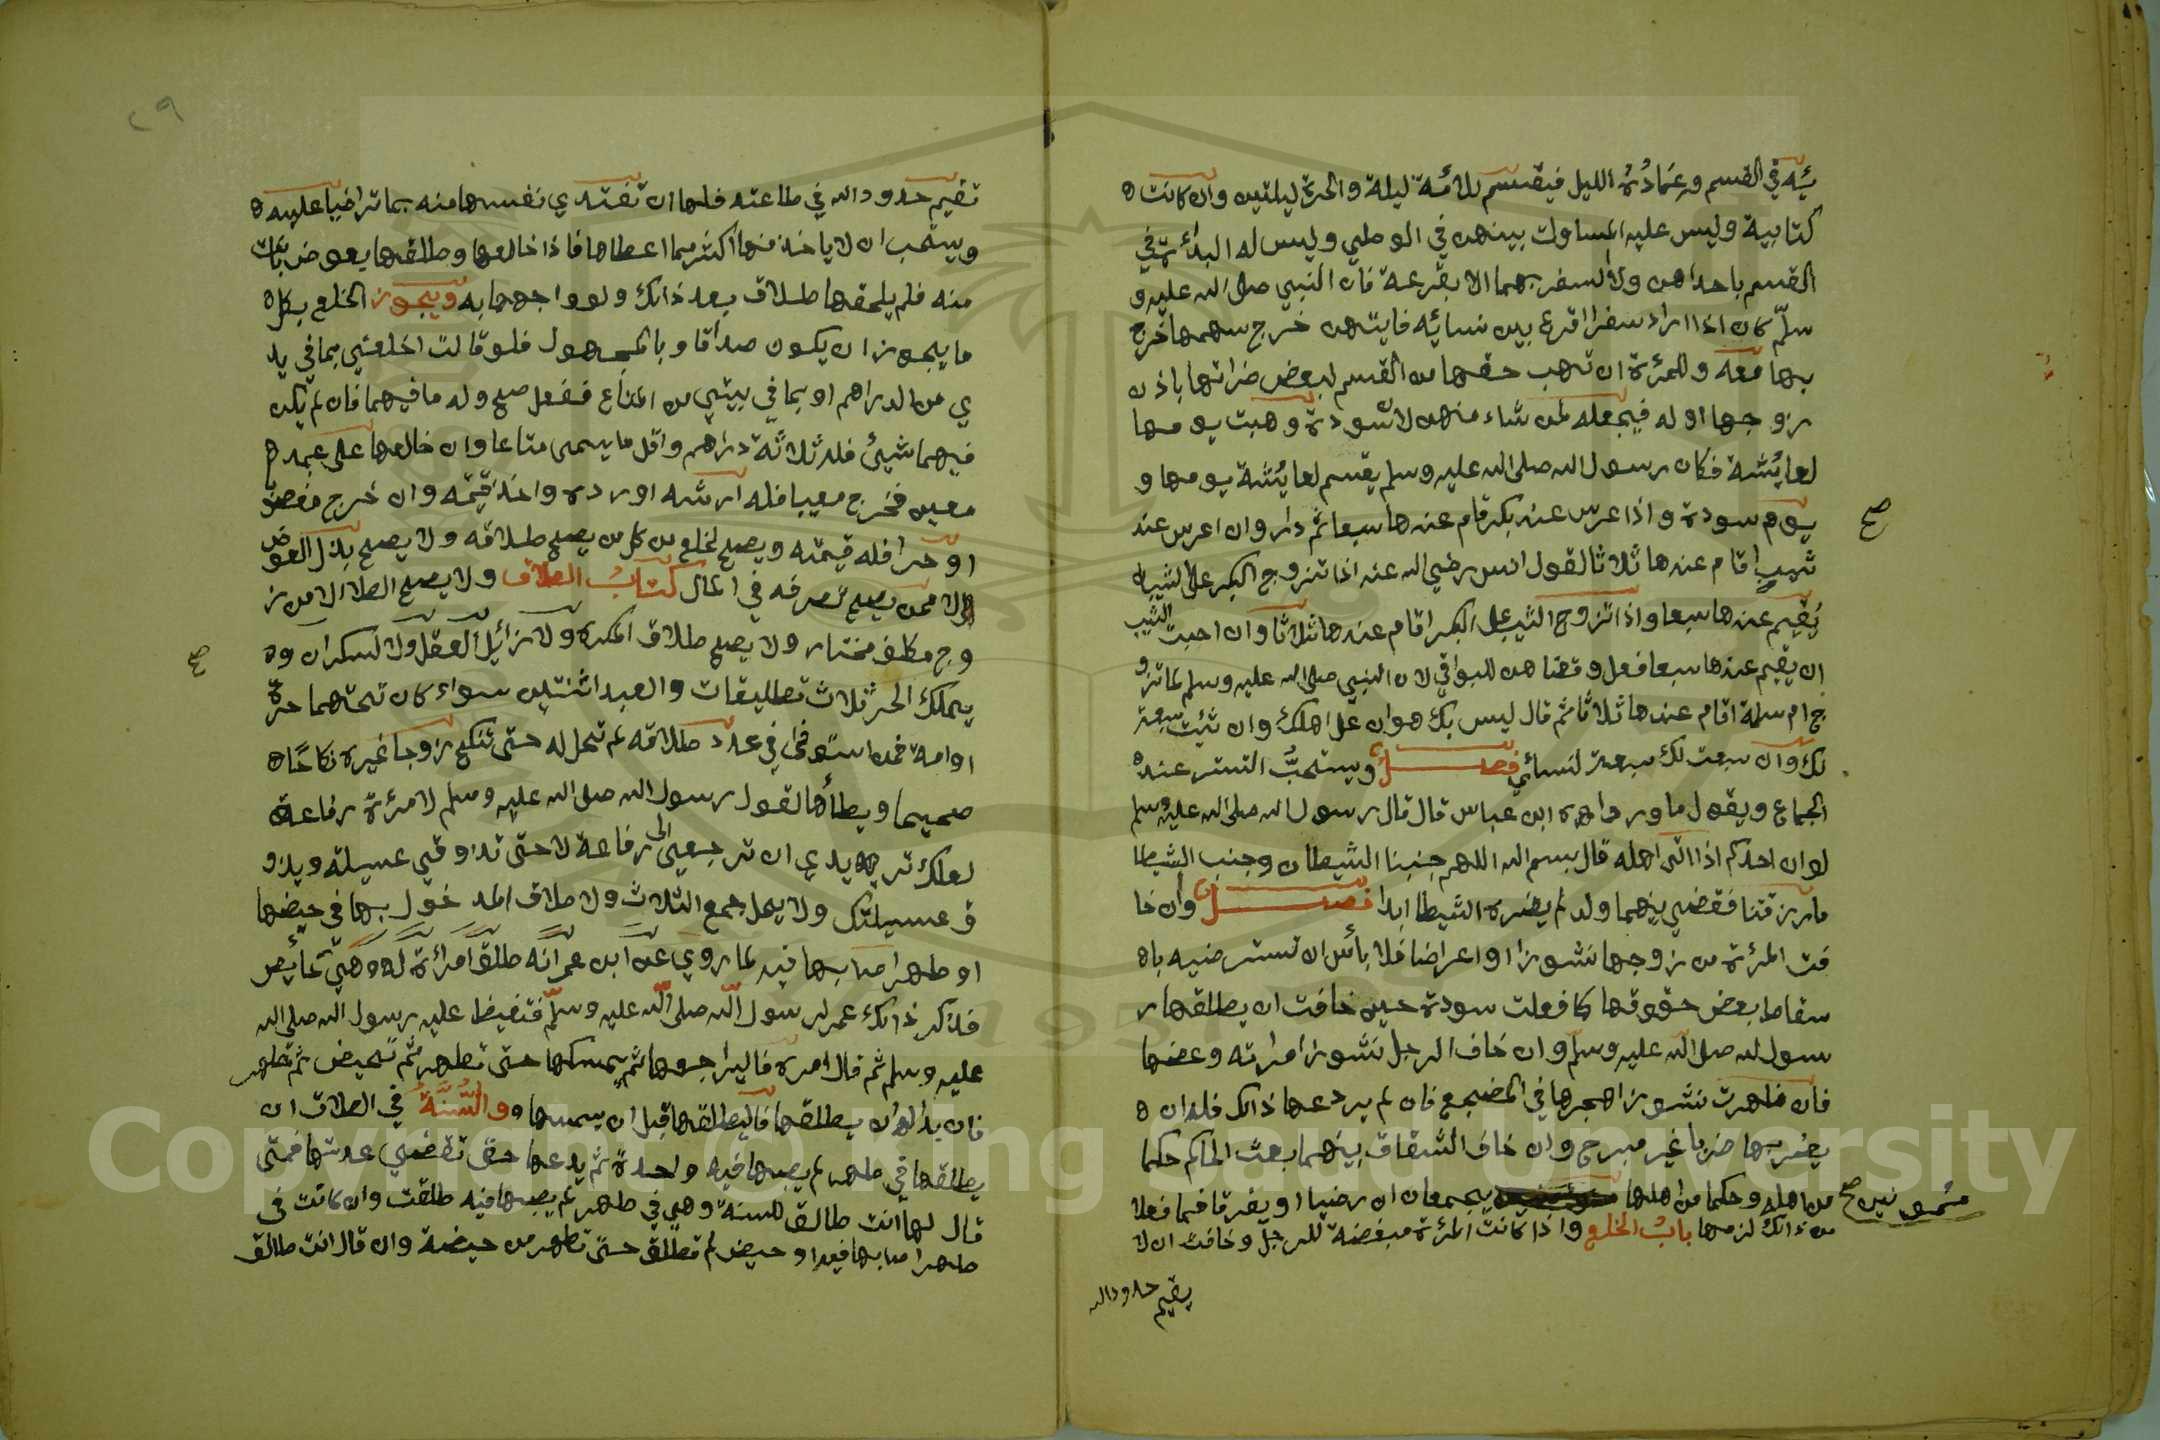 ئه في القسم وعمادُهُ الليل فيقسم للامة ليلة والحرة ليلتين وان كانت ه
كتابية وليس عليه المساوات بينهن في الوطي وليس له البدأة في
القسم باحداهن ولا السفر بهما الا بقرعة فان النبي صلى الله عليه و
سلّم كان اذا اراد سفرا اقرع بين نسائه فايتهن خرج سهمها خرج
بها معه وللمرئة ان تهب حقها من القسم لبعض ضراتها باذن
زوجها او له فيجعله لمن شاء منهن لان سودة وهبت يومها
لعايُشة فكان رسول الله صلى الله عليه وسلم يقسم لعايُشة يومها و
يوم سودة واذا عرس عند بكر قام عندها سبعا ثم دار وان اعرس عند
صح
ثيب اقام عندها ثلاثا لقول انس رضي الله عنه اذا تزوج البكر على الثيب
يُقيم عندها سبعا واذا تزوج الثيب على البكر اقام عندها ثلاثا وان احبت الثيب
ان يقيم عندها سبعا فعل وقضاهن للبواقي لان النبي صلى الله عليه وسلم لما تزو
ج ام سلمة اقام عندها ثلاثا ثم قال ليس بك هوان على اهلك وان شئت سبعت
لك وان سبعت لك سبعت لنسائي فصل ويستحبُّ التستر عنده
الجماع ويقول ما ورد رواه ابن عباس قال قال رسول الله صلى الله عليه وسلم
لو ان احدكم اذا اتى اهله قال بسم الله اللهم جنبنا الشيطان وجنب الشيطا
ما رزقتنا فقضي بينهما ولد لم يضره الشيطا ابدا فصل وان خا
فت المرئة من زوجها نشوزا او اعراضا فلا بأس ان تسترضيه باه
سقاط بعض حقوقها كما فعلت سودة حين خافت ان يطلقها ر
سول لله صلى الله عليه وسلم وان خاف الرجل نشوز امراته وعضها
فان ظهرت نشوزا هجرها في المضجع فان لم يردعها ذالك فله ان ه
يضربها ضربا غير مبرج وان خاف الشقاق بينهما بعث الحاكم حكما
من اهله وحكما من اهلها يجمعان ان رضيا او يفرقا فما فعلا
مٌمونين صح
من ذالك لزمها بابُ الخلع واذا كانت المرئة مبغضة للرجل وخافت ان لا
يقيم حدود الله
٢٩
تقيم حدود الله في طاعته فلها ان تفتدي نفسها منه بما تراضيا عليه ه
ويستحب ان لا ياخذ منها اكثر مما اعطاها فاذا خالعها وطلقها بعوض بانت
منه فلم يلحقها طلاق بعد ذالك ولو واجهها به ويجوز الخلع بكل ه
ما يجوز ان يكون صداقا وبالمجهول فلو قالت اخلعني بما في يد
ي من الدراهم او بما في بيتي من المتاع ففعل صح وله ما فيهما فان لم يكن
فيهما شيئ فله ثلاثة دراهم واقل ما يسمى متاعا وان خالعها على عبد ه
معين فخرج معيبا فله ارشه او رده واخذ قيمته وان خرج مغصو
او حرا فله قيمته ويصح لخلع من كل من يصح طلاقه ولا يصح بذل العوض
الا ممن يصح تصرفه في المال كتابُ الطلاق ولا يصح الطلا الا من ز
وج مكلف مختار ولا يصح طلاق المكره ولا زائل العقل ولا السكران وه
صح
يملك الحر ثلاث تطليقات والعبد اثنتين سواء كان تحتهما حرة
او امة فمن استوفى في عدد طلاقه لم تحل له حتى تنكح زوجا غيره نكاحًا ه
صحيحا ويطأها لقول رسول الله صلى الله عليه وسلم لامرئة رفاعة
لعلك تريدي ان ترجعي الى رفاعة لا حتى تذاوقي عسيلته ويذو
ق عسيلتك ولا يحل جمع الثلاث ولا طلاق المدخول بها في حيضها
او طهر اصابها فيه لما روي عن ابن عمر انه طلق امرأة له وهي حايُض
فذكر ذالك عمر لرسول الله صلى الله عليه وسلّم فتغيظ عليه رسول الله صلى الله
عليه وسلم ثم قال امره فاليراجعها ثم يمسكها حتى تطهر ثم تحيض ثم تطهر
فان بدا له ان يطلقها فاليطلقها قبل ان يمسها و والسُّنَّةُ في الطلاق ان
يطلقها في طهر لم يصبها فيه واحدة ثم يدعها حتى تقضي عدتها فمتى
قال لها انت طالق للسنة وهي في طهر لم يصبها فيه طلقت وان كانت في
طهر اصابها فيه او حيض لم تطلق حتى تطهر من حيضة وان قال انت طالق
Copyright © King Saud University